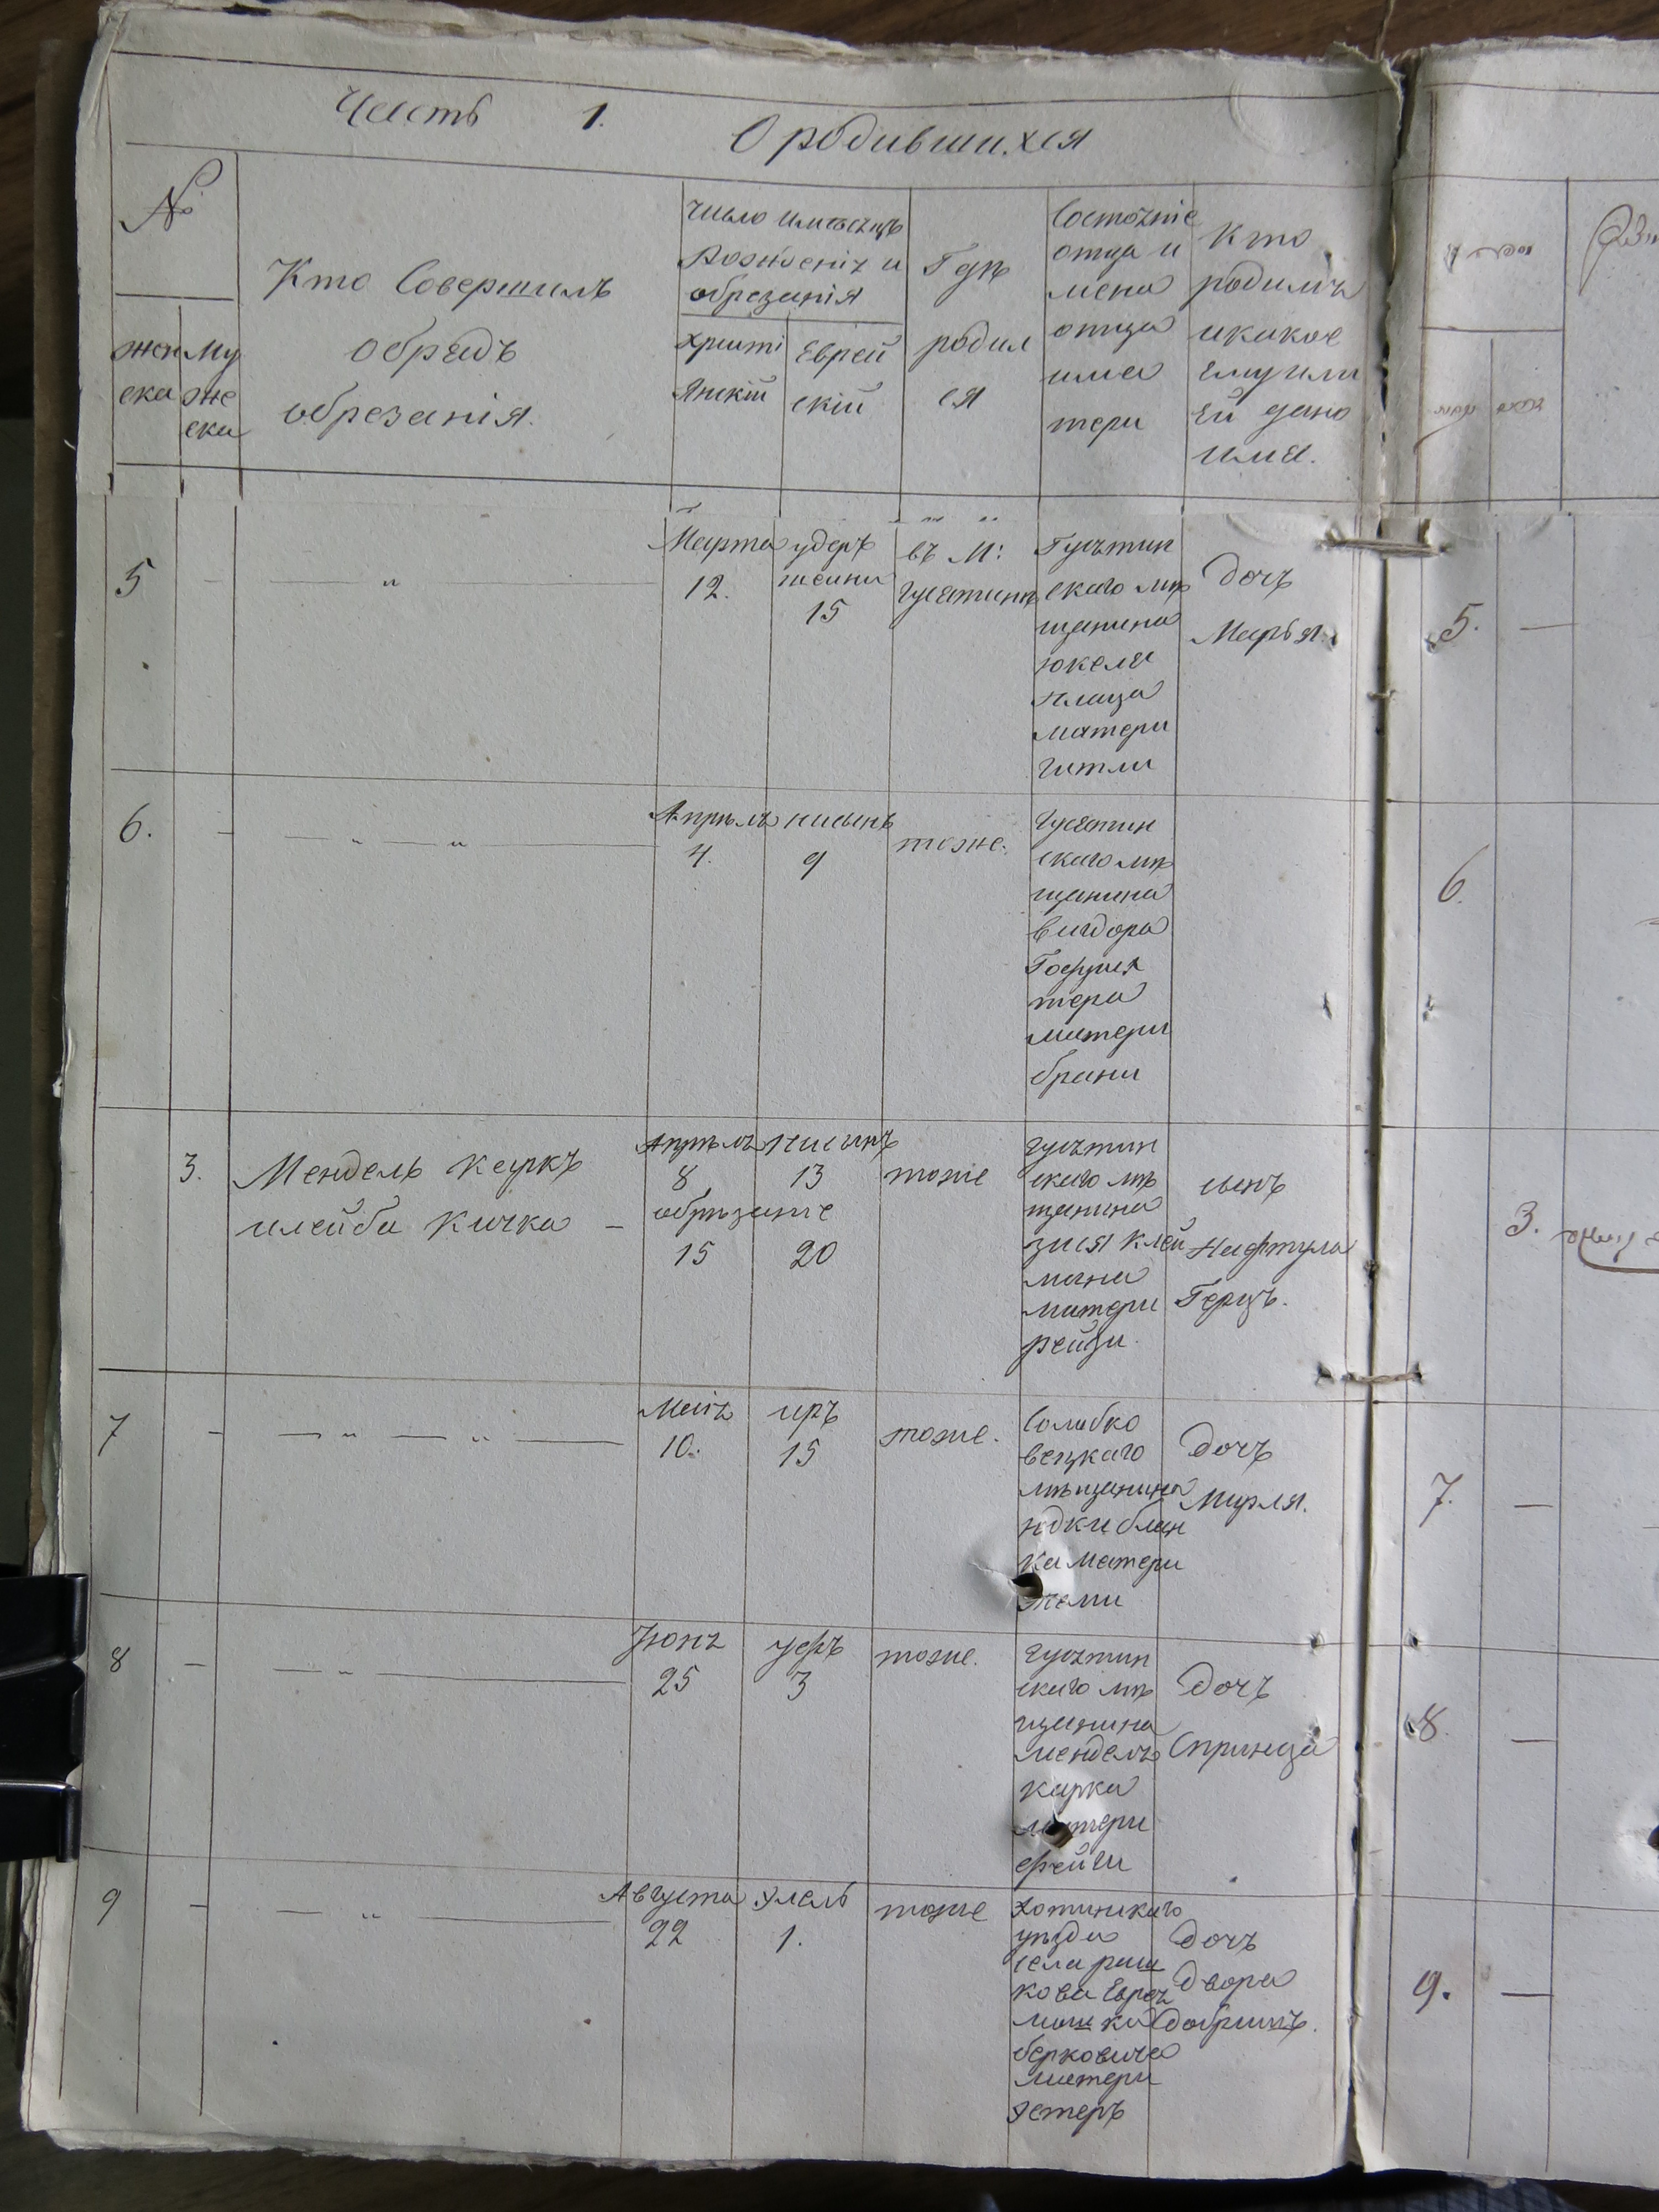 Часть 1. О родившихся
№
жен
ска
му
же
ска
Кто Совершилъ
обрядъ
обрезанія.
число имѣсяцъ
Рожденія и
обрезанія
христі
янскій
Еврей
скій
Гдѣ
родил
ся
Состояніе
отца и
имена
отца
има
тери
Кто
родилъ
икакое
Ему или
Ей дано
имя.
5 – — " —
Марта
12.
удеръ
шени
15
въ М:
Гусятинѣ
Гусятин
скаго мѣ
щанина
Юкеля
плаца
матери
Гитли
дочь
Марья.
5. —
6. – — " — " —
Апрѣль
4.
нисынъ
9
тоже.
Гусятин
скаго мѣ
щанина
Вигдора
Гофшия
тера
матери
брани
6.
3. Мендель каркъ
илейба Кичка –
Апрѣль
8
нисынъ
13
обрѣзаніе
15 20
тоже
Гусятин
скаго мѣ
щанина
зися Клей
мана
матери
рейзи.
сынъ
Нафтула
Герцъ.
3.
7 – — " — " —
Маія
10.
иръ
15
тоже.
Солобко
вецкаго
мѣщанина
матери
дочь
Мирля.
7. —
8 – — " —
Іюня
25
3
тоже.
Гусятин
скаго мѣ
щанина
менделя
карка
матери
фейги
Дочь
Спринца
8. —
9 – — " —
Августа
22
Элель
1.
тоже
Хотинскаго
уѣзда
села раш
кова Евреч
мошка
берковича
матери
Эстеръ
дочь
Двора
Добришъ.
9. —